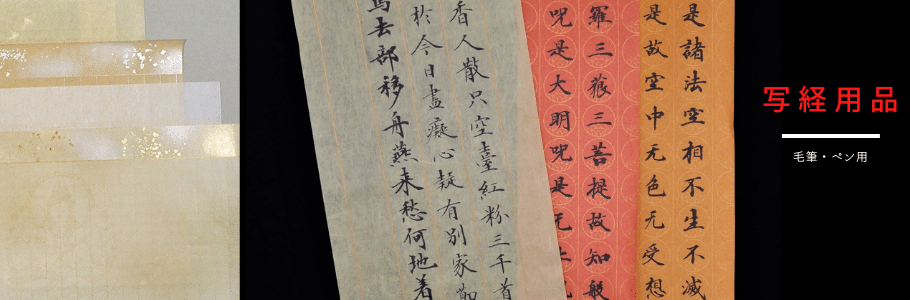 写経用品
毛筆・ペン用
是諸法空相不生不滅
是故空中无色无受想
羅三藐三菩提故知般
呪是大明呪是无上
香人散只空臺紅粉三千首
於今日盡癡心疑有別家
馬去部移舟燕来愁何地着